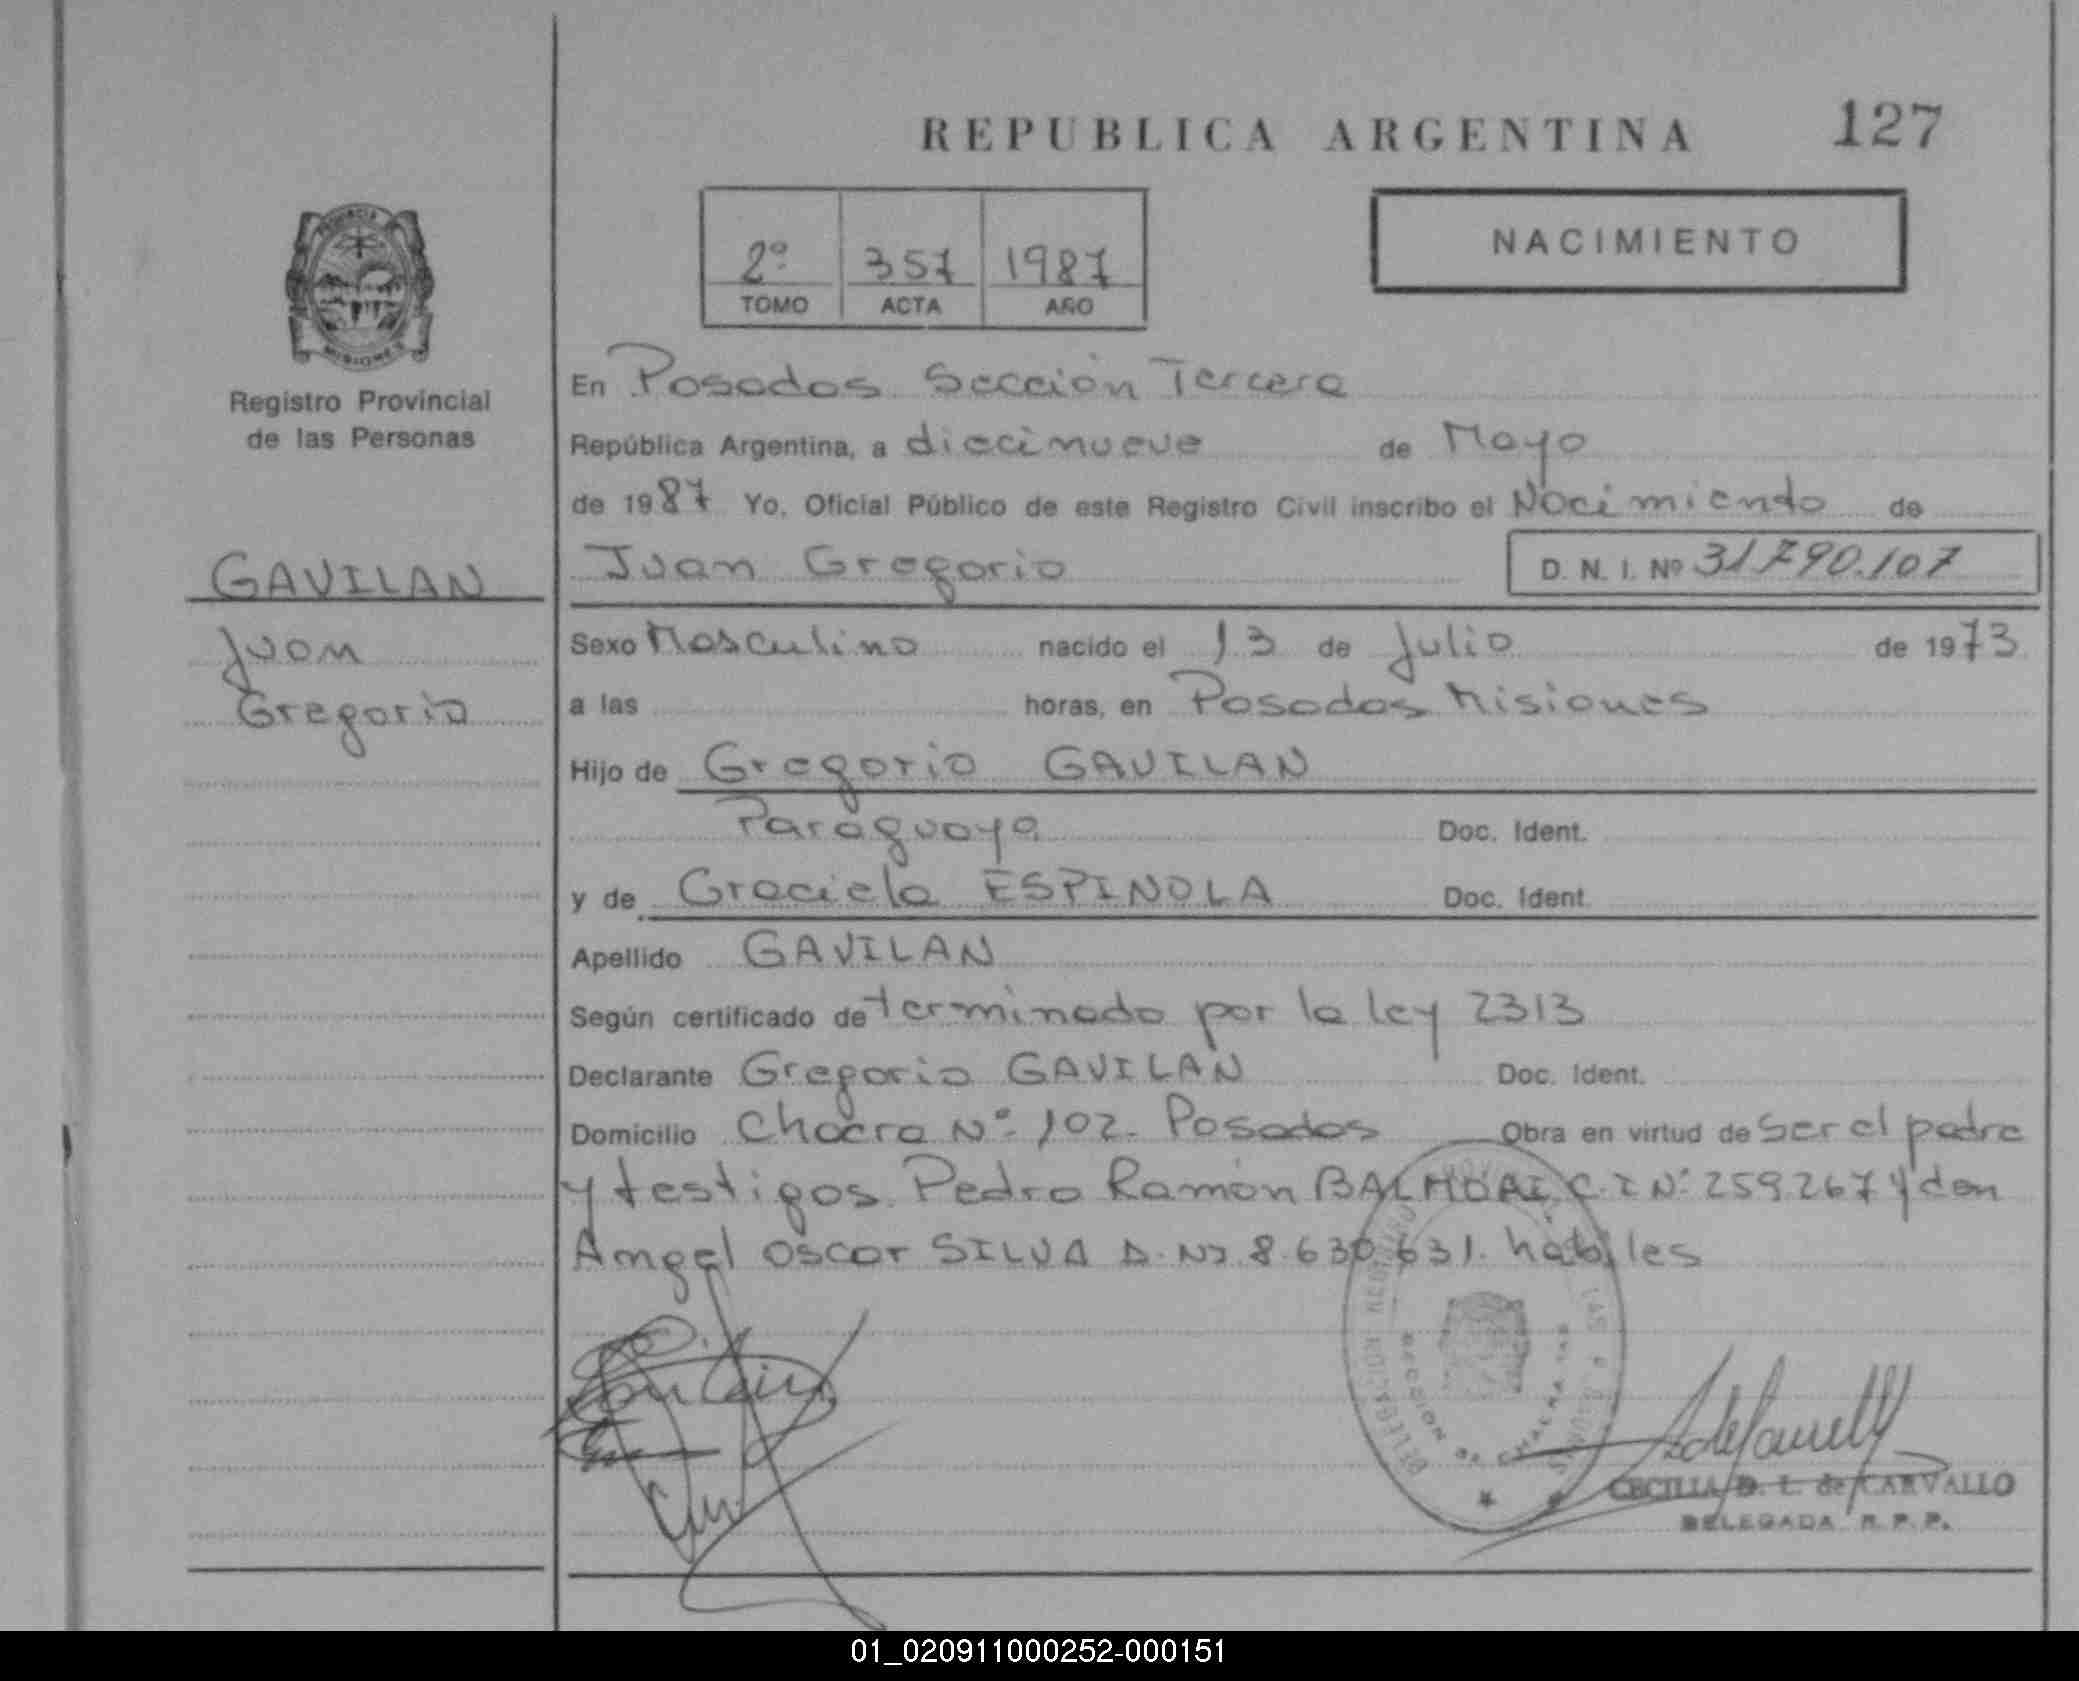 REPUBLICA ARGENTINA 127
2º 357 1987
TOMO ACTA AÑO
NACIMIENTO
PROVINCIA
MISIONES
Registro Provincial
de las Personas
GAVILAN
Juan
Gregorio
En Posadas Sección Tercera
República Argentina, a diecinueve de Mayo
de 1987 Yo, Oficial Público de este Registro Civil inscribo el Nacimiento de
Juan Gregorio D. N. I. Nº 31.790.107
Sexo Masculino nacido el 13 de Julio de 1973
a las horas, en Posadas Misiones
Hijo de Gregorio GAVILAN
Paraguaya Doc. Ident.
y de Graciela ESPINOLA Doc. Ident.
Apellido GAVILAN
Según certificado determinado por la ley 2313
Declarante Gregorio GAVILAN Doc. Ident.
Domicilio Chacra Nº 102. Posadas Obra en virtud de ser el padre
y testigos Pedro Ramón C.I Nº 259.267 y don
Angel Oscar SILVA D.NI. 8.630.631. habiles
CECILIA D. L. de CARVALLO
DELEGADA R. P. P.
01_020911000252-000151